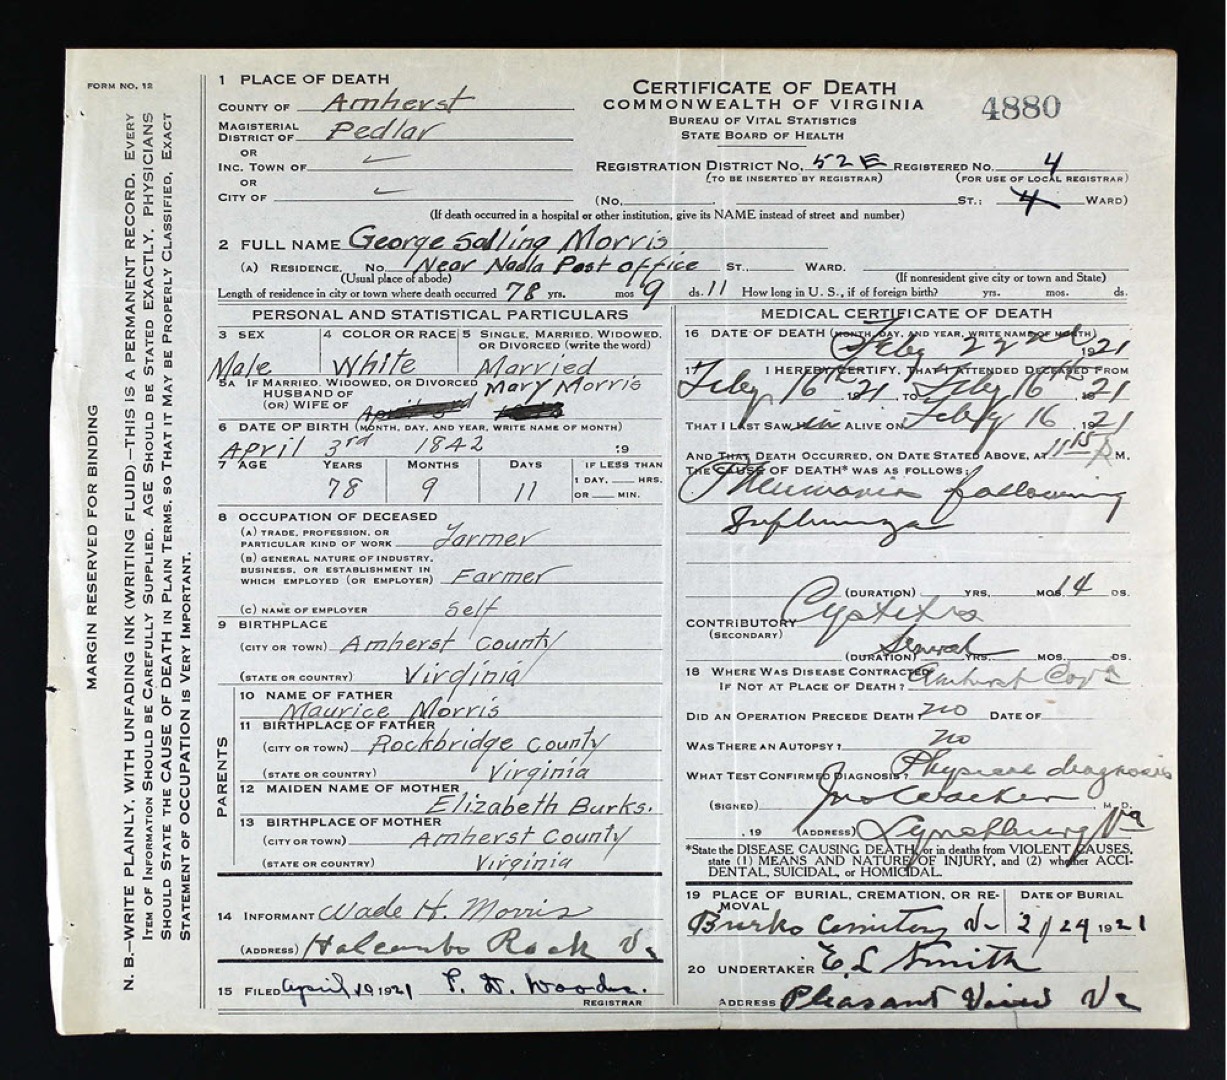 FORM NO. 12
MARGIN RESERVED FOR BINDING
N. B.—WRITE PLAINLY, WITH UNFADING INK (WRITING FLUID).—THIS IS A PERMANENT RECORD. EVERY
ITEM OF INFORMATION SHOULD BE CAREFULLY SUPPLIED. AGE SHOULD BE STATED EXACTLY. PHYSICIANS
SHOULD STATE THE CAUSE OF DEATH IN PLAIN TERMS, SO THAT IT MAY BE PROPERLY CLASSIFIED. EXACT
STATEMENT OF OCCUPATION IS VERY IMPORTANT.
1 PLACE OF DEATH
COUNTY OF Amherst
MAGISTERIAL DISTRICT OF Pedlar
OR
INC. TOWN OF
OR
CITY OF
CERTIFICATE OF DEATH
COMMONWEALTH OF VIRGINIA
BUREAU OF VITAL STATISTICS
STATE BOARD OF HEALTH
4880
REGISTRATION DISTRICT NO. 52E REGISTERED NO. 4
(TO BE INSERTED BY REGISTRAR) (FOR USE OF LOCAL REGISTRAR)
(No. ST.; 4 WARD)
(If death occurred in a hospital or other institution, give its NAME instead of street and number)
2 FULL NAME George Salling Morris
(A) RESIDENCE. No. Near Nada Post office ST., WARD.
(Usual place of abode) (If nonresident give city or town and State)
Length of residence in city or town where death occurred 78 yrs. mos 9 ds. 11 How long in U. S., if of foreign birth? yrs. mos. ds.
PERSONAL AND STATISTICAL PARTICULARS
3 SEX
Male
4 COLOR OR RACE
White
5 SINGLE, MARRIED, WIDOWED, OR DIVORCED (write the word)
Married
5A IF MARRIED, WIDOWED, OR DIVORCED
HUSBAND OF
(OR) WIFE OF
Mary Morris
6 DATE OF BIRTH (MONTH, DAY, AND YEAR, WRITE NAME OF MONTH)
April 3rd 1842 19
7 AGE YEARS MONTHS DAYS IF LESS THAN
1 DAY, HRS.
OR MIN.
78 9 11
8 OCCUPATION OF DECEASED
(A) TRADE, PROFESSION, OR
PARTICULAR KIND OF WORK Farmer
(B) GENERAL NATURE OF INDUSTRY,
BUSINESS, OR ESTABLISHMENT IN
WHICH EMPLOYED (OR EMPLOYER) Farmer
(C) NAME OF EMPLOYER Self
9 BIRTHPLACE
(CITY OR TOWN) Amherst County
(STATE OR COUNTRY) Virginia
PARENTS
10 NAME OF FATHER
Maurice Morris
11 BIRTHPLACE OF FATHER
(CITY OR TOWN) Rockbridge County
(STATE OR COUNTRY) Virginia
12 MAIDEN NAME OF MOTHER
Elizabeth Burks.
13 BIRTHPLACE OF MOTHER
(CITY OR TOWN) Amherst County
(STATE OR COUNTRY) Virginia
14 INFORMANT Wade H. Morris
(ADDRESS) Holcombs Rock Va
15 FILED april 10 1921 Woods.
REGISTRAR
MEDICAL CERTIFICATE OF DEATH
16 DATE OF DEATH (MONTH, DAY, AND YEAR, WRITE NAME OF MONTH)
Feby 22nd 1921
17 I HEREBY CERTIFY, THAT I ATTENDED DECEASED FROM
Feby 16th 1921, TO Feby 16th 1921
THAT I LAST SAW him ALIVE ON Feby 16 1921
AND THAT DEATH OCCURRED, ON DATE STATED ABOVE, AT 1115 P M.
THE CAUSE OF DEATH* WAS AS FOLLOWS:
Pneumonia following
Influenza
(DURATION) YRS. MOS. 14 DS.
CONTRIBUTORY Cystitis
(SECONDARY)
(DURATION) Several YRS. MOS. DS.
18 WHERE WAS DISEASE CONTRACTED
IF NOT AT PLACE OF DEATH? Amherst Co Va
DID AN OPERATION PRECEDE DEATH? no DATE OF
WAS THERE AN AUTOPSY? no
WHAT TEST CONFIRMED DIAGNOSIS? Physical diagnosis
(SIGNED) Jno M. D.
, 19 (ADDRESS) Lynchburg Va
*State the DISEASE CAUSING DEATH, or in deaths from VIOLENT CAUSES,
state (1) MEANS AND NATURE OF INJURY, and (2) whether ACCI-
DENTAL, SUICIDAL, or HOMICIDAL.
19 PLACE OF BURIAL, CREMATION, OR RE-
MOVAL
Burks Cemitery Va
DATE OF BURIAL
2/24 1921
20 UNDERTAKER E. L Smith
ADDRESS Pleasant View Va